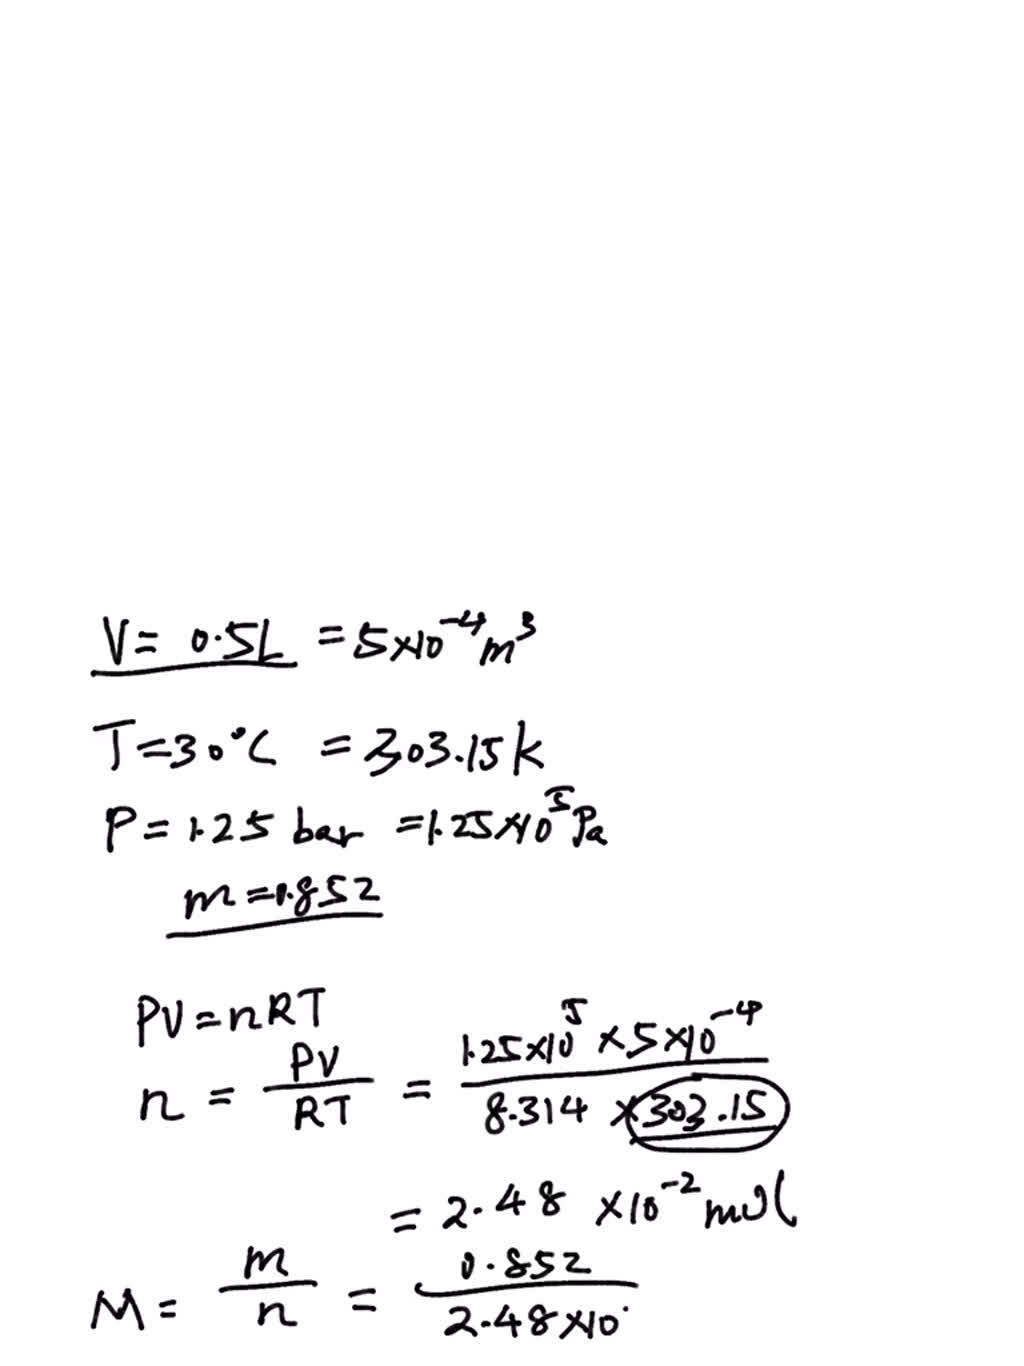 V= 0.5L = 5×10⁻⁴m³
T=30°C = 303.15k
P=1.25 bar =1.25×10⁵Pa
m=0.852
PV=nRT
n = PV/RT = 1.25×10⁵ ×5×10⁻⁴/8.314 ×303.15
= 2.48 ×10⁻² mol
M= m/n = 0.852/2.48×10